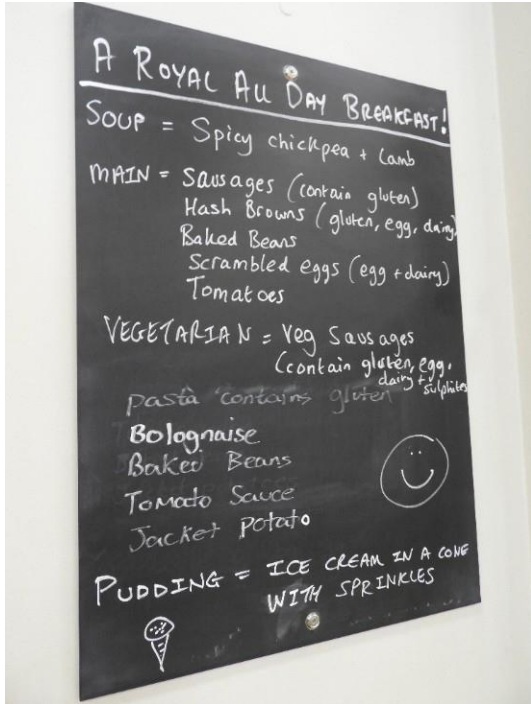 A ROYAL ALL DAY BREAKFAST!
SOUP = Spicy chickpea + Lamb
MAIN = Sausages (contain gluten)
Hash Browns (gluten, egg, dairy)
Baked Beans
Scrambled eggs (egg + dairy)
Tomatoes
VEGETARIAN = Veg Sausages
(contain gluten, egg,
dairy + sulphites
pasta contains gluten
Bolognaise
Baked Beans
Tomato Sauce
Jacket Potato
PUDDING = ICE CREAM IN A CONE
WITH SPRINKLES